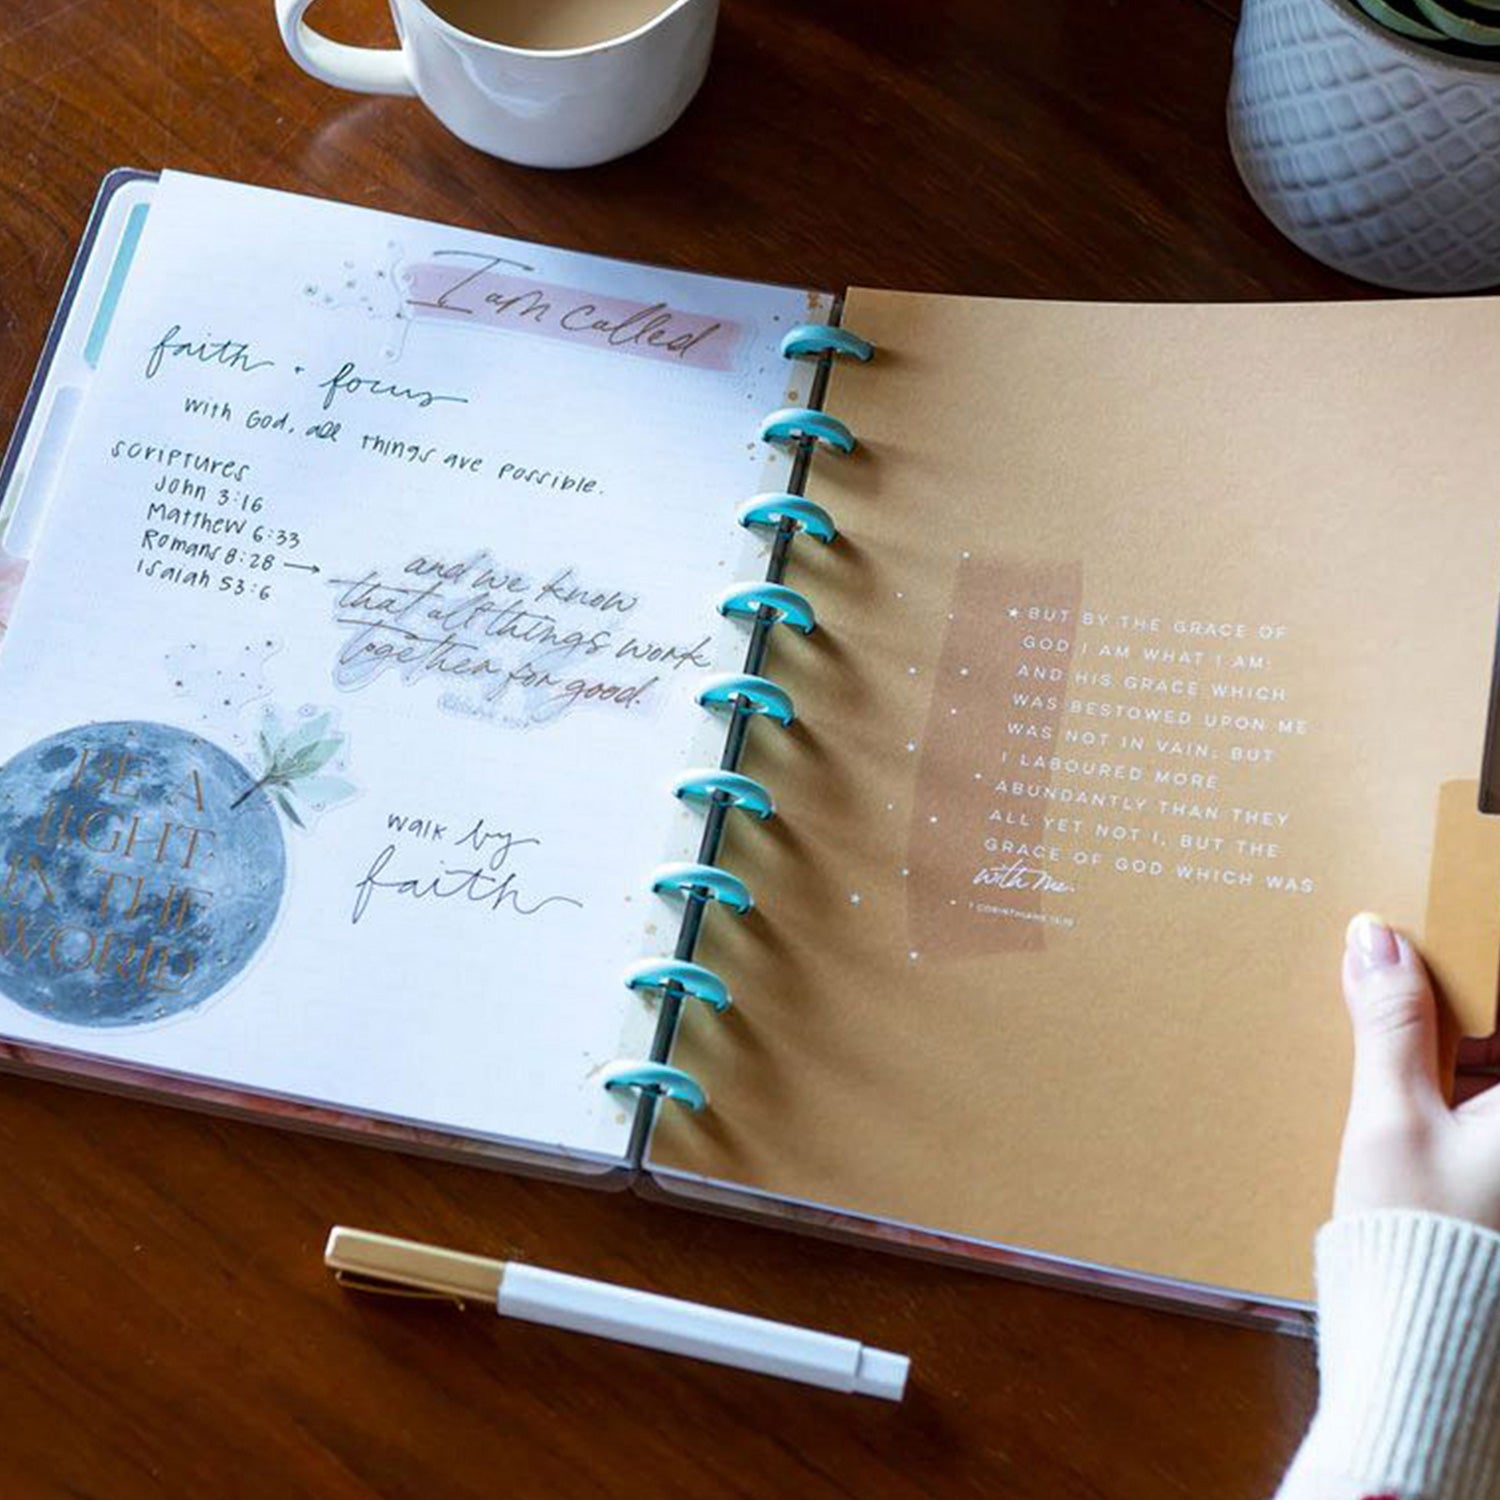 I am called
faith + focus
with God, all things are possible.
scriptures
John 3:16
Matthew 6:33
Romans 8:28 →
Isaiah 53:6
and we know
that all things work
together for good.
BE A
LIGHT
IN THE
WORLD
walk by
faith
★ BUT BY THE GRACE OF
GOD I AM WHAT I AM:
AND HIS GRACE WHICH
WAS BESTOWED UPON ME
WAS NOT IN VAIN; BUT
I LABOURED MORE
ABUNDANTLY THAN THEY
ALL YET NOT I, BUT THE
GRACE OF GOD WHICH WAS
with me.
1 CORINTHIANS 15:10